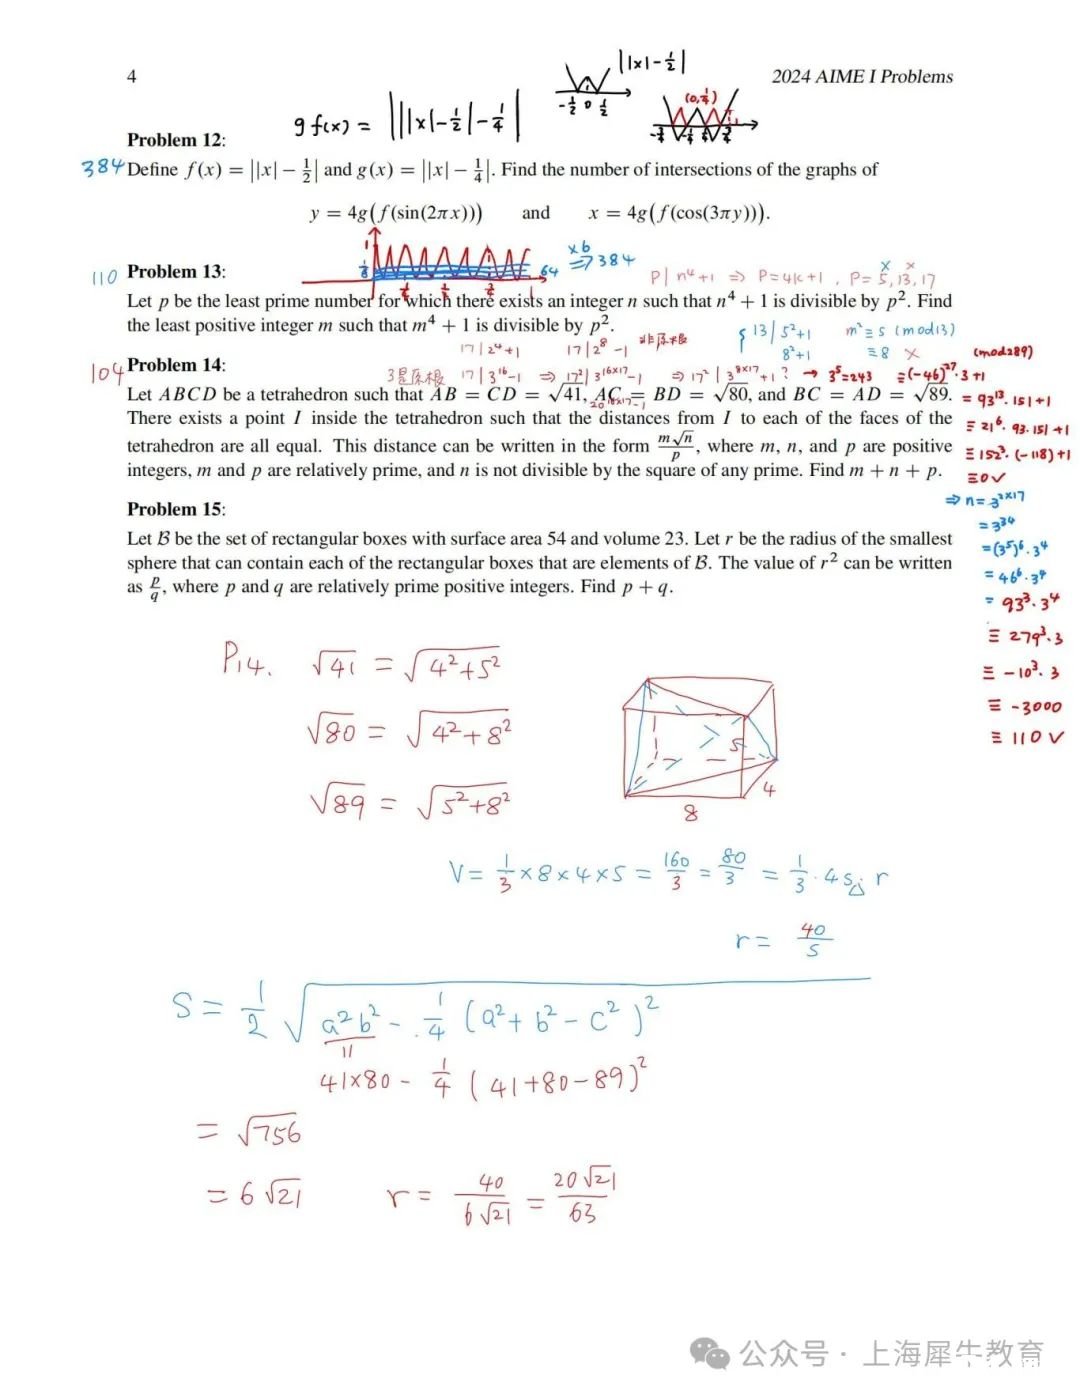 4
||x|-1/2|
2024 AIME I Problems
-1/2 0 1/2
(0,1/4)
g f(x) = |||x|-1/2|-1/4|
Problem 12:
384 Define f(x) = ||x| − 1/2| and g(x) = ||x| − 1/4|. Find the number of intersections of the graphs of
y = 4g(f(sin(2πx))) and x = 4g(f(cos(3πy))).
64
x6 ⇒ 384
110 Problem 13:
P | n⁴+1 ⇒ P=4k+1, P= 5, 13, 17
Let p be the least prime number for which there exists an integer n such that n⁴ + 1 is divisible by p². Find
the least positive integer m such that m⁴ + 1 is divisible by p².
17 | 2⁴+1 17 | 2⁸-1 非原根
{ 13 | 5²+1 m²≡5 (mod13)
8²+1 ≡8 ×
104 Problem 14:
3是原根 17 | 3¹⁶-1 ⇒ 17² | 3^(16×17)-1 ⇒ 17² | 3^(8×17)+1 ? → 3⁵=243 ≡(-46)²⁷·3+1
(mod289)
Let ABCD be a tetrahedron such that AB = CD = √41, AC = BD = √80, and BC = AD = √89.
= 93¹³·151+1
There exists a point I inside the tetrahedron such that the distances from I to each of the faces of the
≡ 21⁶·93·151+1
tetrahedron are all equal. This distance can be written in the form m√n/p, where m, n, and p are positive
≡ 152³·(-118)+1
integers, m and p are relatively prime, and n is not divisible by the square of any prime. Find m + n + p.
≡0 ✓
Problem 15:
⇒ n= 3^(2×17)
= 3³⁴
Let B be the set of rectangular boxes with surface area 54 and volume 23. Let r be the radius of the smallest
= (3⁵)⁶·3⁴
sphere that can contain each of the rectangular boxes that are elements of B. The value of r² can be written
= 46⁶·3⁴
as p/q, where p and q are relatively prime positive integers. Find p + q.
= 93³·3⁴
≡ 279³·3
≡ -10³·3
≡ -3000
≡ 110 ✓
P14. √41 = √(4²+5²)
√80 = √(4²+8²)
√89 = √(5²+8²)
5
4
8
V = 1/3 ×8×4×5 = 160/3 = 80/3 = 1/3 · 4S△ r
r = 40/S
S = 1/2 √(a²b² - 1/4 (a²+b²-c²)²
41×80 - 1/4 (41+80-89)²
= √756
= 6√21 r = 40/6√21 = 20√21/63
公众号 · 上海犀牛教育